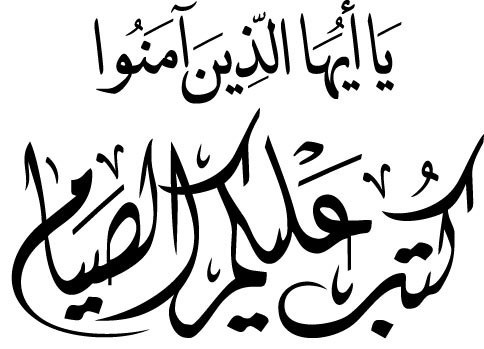 يَا أَيُّهَا الَّذِينَ آمَنُوا
كُتب عليكم الصيام